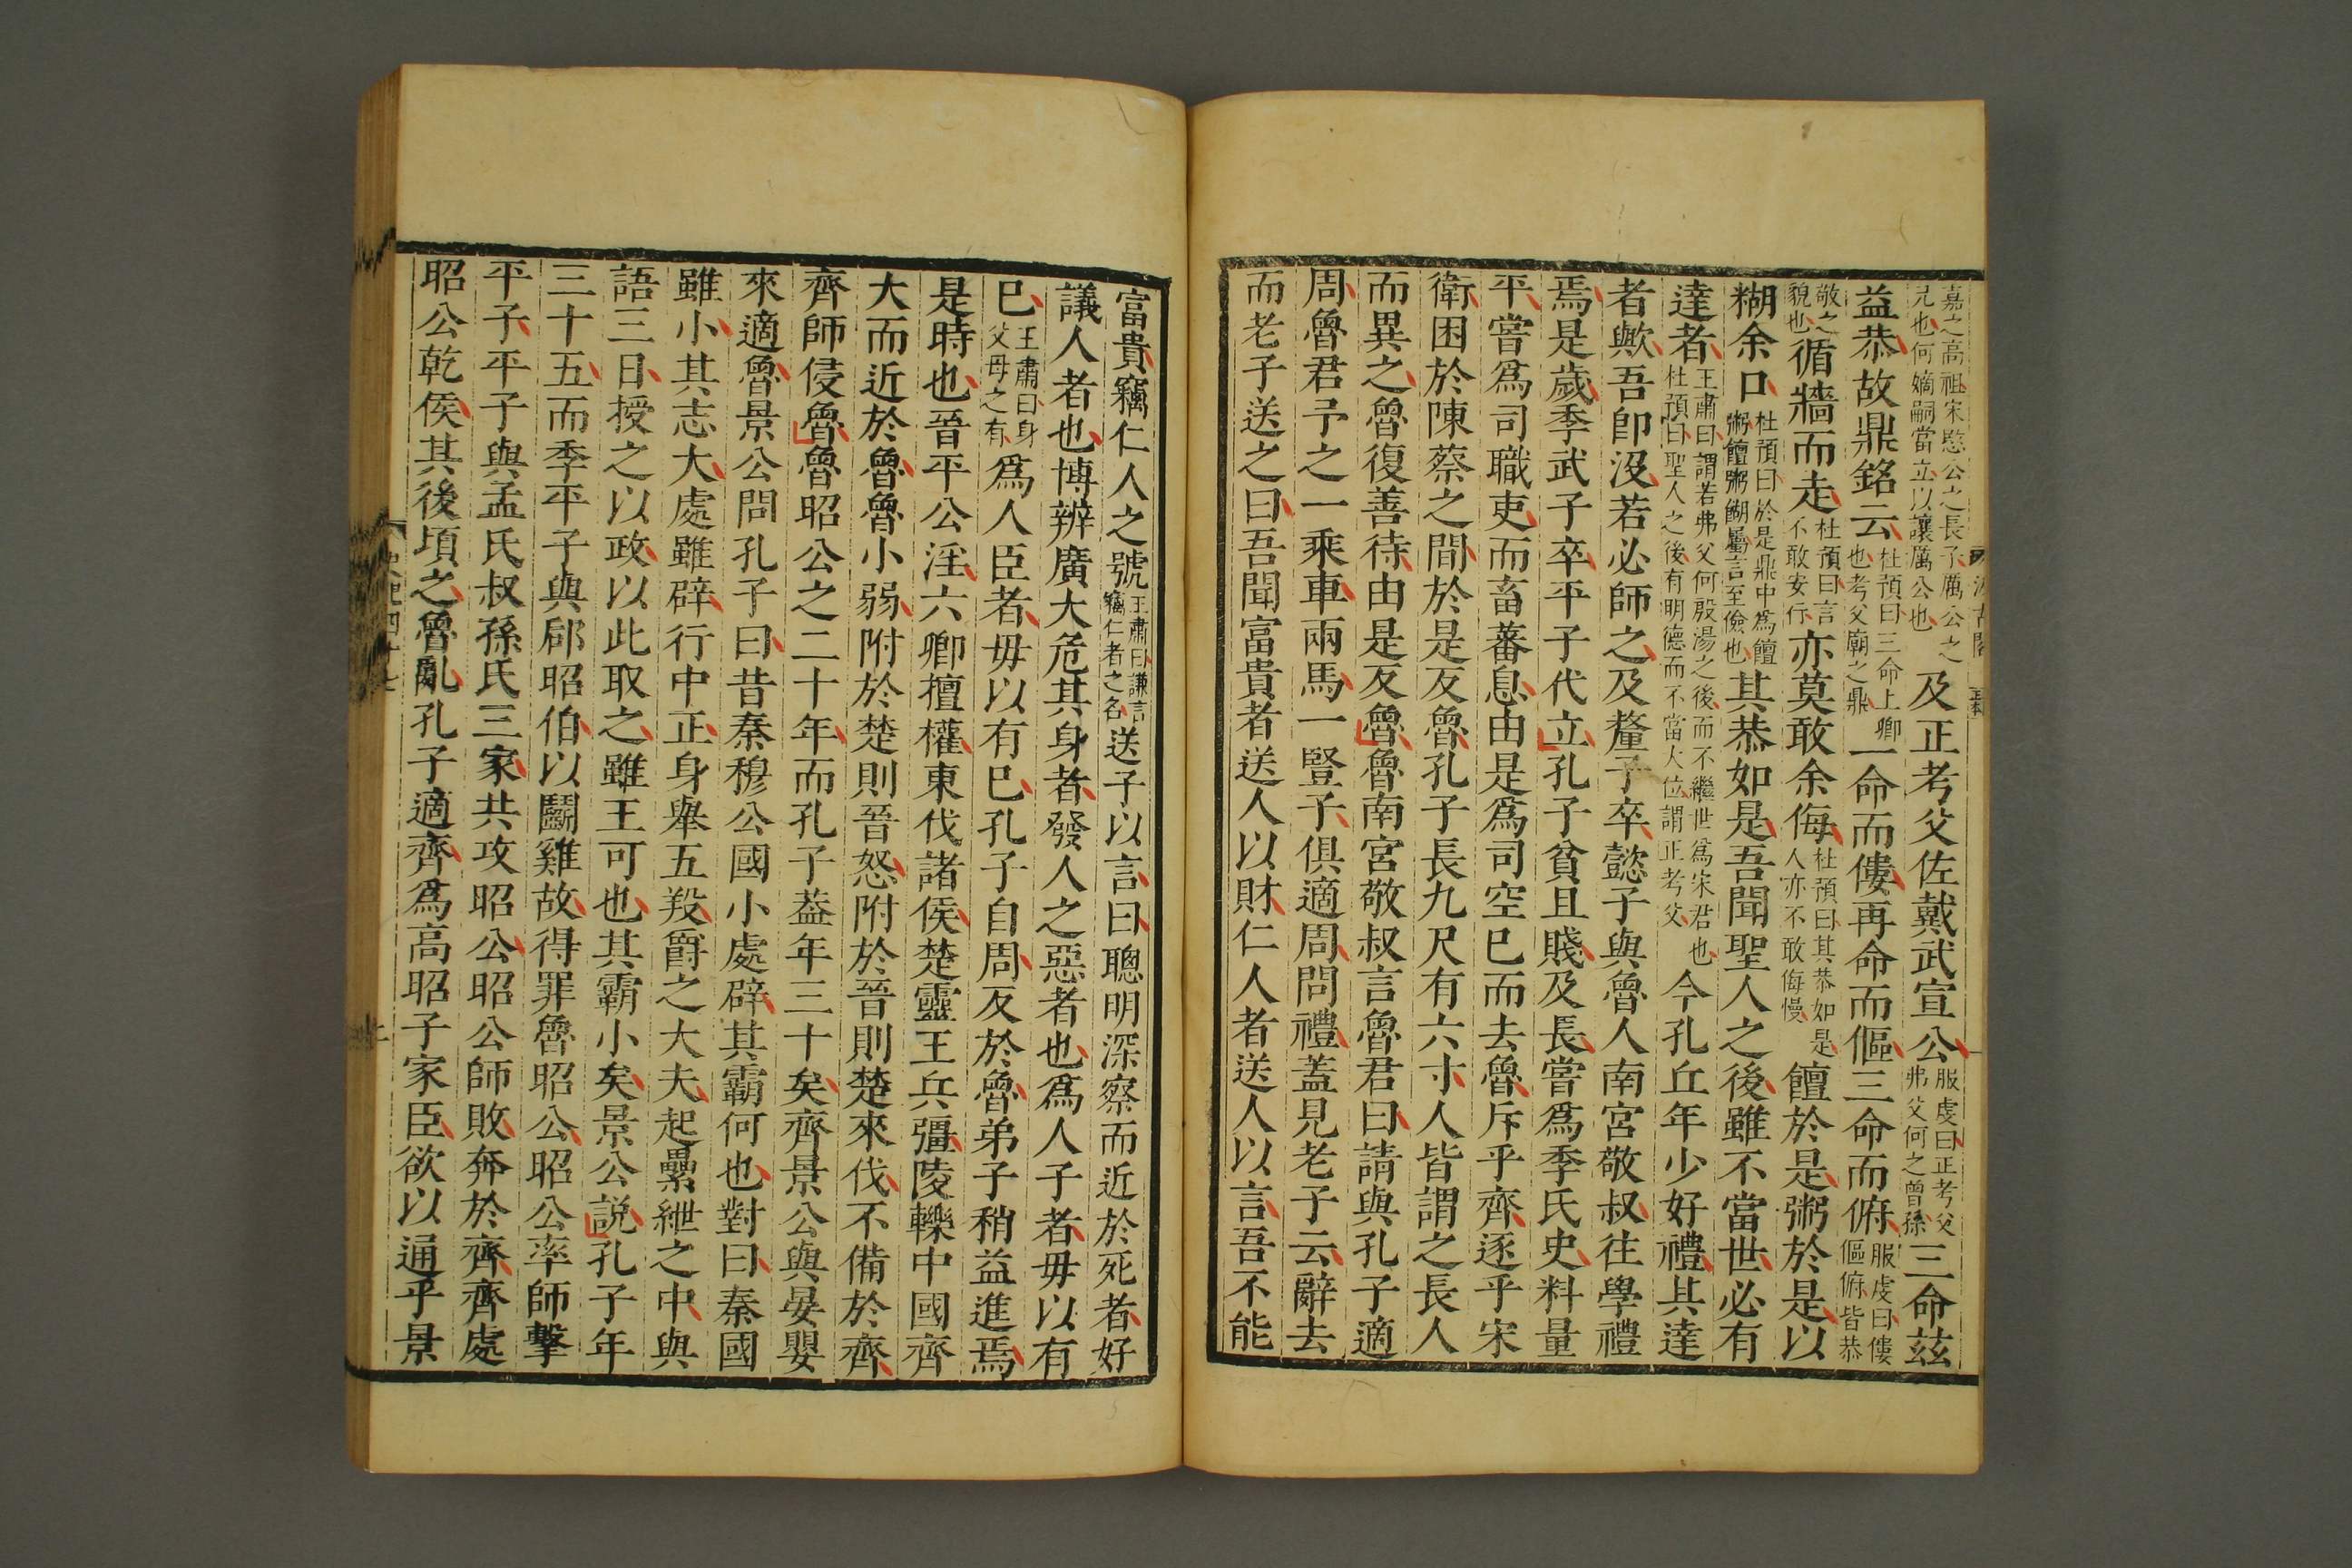 嘉之高祖宋愍公之長子厲公之
兄也何嫡嗣當立以讓厲公也
及正考父佐戴武宣公
服虔曰正考父
弗父何之曾孫
三命茲
益恭故鼎銘云
杜預曰三命上卿
也考父廟之鼎
一命而僂再命而傴三命而俯
服虔曰僂
傴俯皆恭
敬之
貌也
循牆而走
杜預曰言
不敢安行
亦莫敢余侮
杜預曰其恭如是
人亦不敢侮慢
饘於是粥於是以
糊余口
杜預曰於是鼎中爲饘
粥饘粥餬屬言至儉也
其恭如是吾聞聖人之後雖不當世必有
達者
王肅曰謂若弗父何殷湯之後而不繼世爲宋君也
杜預曰聖人之後有明德而不當大位謂正考父
今孔丘年少好禮其達
者歟吾卽沒若必師之及釐子卒懿子與魯人南宮敬叔往學禮
焉是歲季武子卒平子代立孔子貧且賤及長嘗爲季氏史料量
平嘗爲司職吏而畜蕃息由是爲司空已而去魯斥乎齊逐乎宋
衛困於陳蔡之間於是反魯孔子長九尺有六寸人皆謂之長人
而異之魯復善待由是反魯魯南宮敬叔言魯君曰請與孔子適
周魯君予之一乘車兩馬一豎子俱適周問禮蓋見老子云辭去
而老子送之曰吾聞富貴者送人以財仁人者送人以言吾不能
富貴竊仁人之號
王肅曰謙言
竊仁者之名
送子以言曰聰明深察而近於死者好
議人者也博辨廣大危其身者發人之惡者也爲人子者毋以有
已
王肅曰身
父母之有
爲人臣者毋以有已孔子自周反於魯弟子稍益進焉
是時也晉平公淫六卿擅權東伐諸侯楚靈王兵彊陵轢中國齊
大而近於魯魯小弱附於楚則晉怒附於晉則楚來伐不備於齊
齊師侵魯魯昭公之二十年而孔子蓋年三十矣齊景公與晏嬰
來適魯景公問孔子曰昔秦穆公國小處辟其霸何也對曰秦國
雖小其志大處雖辟行中正身舉五羖爵之大夫起纍紲之中與
語三日授之以政以此取之雖王可也其霸小矣景公說孔子年
三十五而季平子與郈昭伯以鬬雞故得罪魯昭公昭公率師擊
平子平子與孟氏叔孫氏三家共攻昭公昭公師敗奔於齊齊處
昭公乾侯其後頃之魯亂孔子適齊爲高昭子家臣欲以通乎景